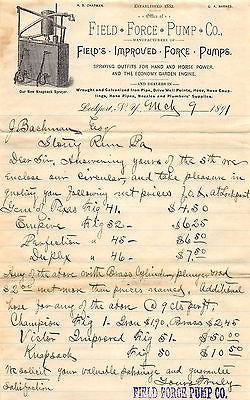 H. B. CHAPMAN.
ESTABLISHED 1882.
C. A. BARNES.
Office of
FIELD FORCE PUMP CO.,
MANUFACTURERS OF
FIELD'S IMPROVED FORCE PUMPS.
SPRAYING OUTFITS FOR HAND AND HORSE POWER,
AND THE ECONOMY GARDEN ENGINE.
AND DEALERS IN
Wrought and Galvanized Iron Pipe, Drive Well Points, Hose, Hose Coup-
lings, Hose Pipes, Nozzles and Plumbers' Supplies.
Our New Knapsack Sprayer
Lockport, N.Y. Mch 9 1891
J. Bachman Esq
Stony Run Pa
Dear Sir, Answering yours of the 5th we en-
close our circular, and take pleasure in
quoting you following net prices f.o.b. at Lockport
Gem of Texas Fig 41. $4.50
Empire Fig 52 $6.25
Perfection " 45 $6.50
Duplex " 46 $7.50
Any of the above with Brass Cylinder plunger rod
$2.00 net more than prices named. Additional
hose for any of above @ 9 cts per ft
Champion Fig 1 - Iron $1.90, Brass $2.45
Victor Improved Fig 51 $5.50
Knapsack Fig 50 $10.50
We solicit your valuable exchange and guarantee
Satisfaction Yours Truly
FIELD FORCE PUMP CO.